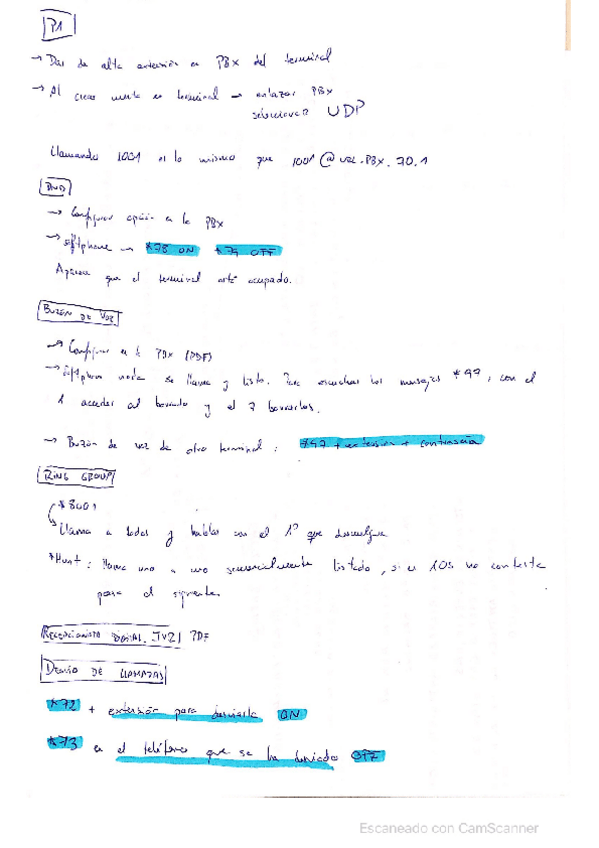 P1
→ Dar de alta extensión en PBX del terminal
→ Al crear cuenta en terminal → enlazar PBX
seleccionar UDP
Llamando 1001 es lo mismo que 1001@voz.PBX.70.1
DND
→ Configurar opción en la PBX
→ softphone → *78 ON *79 OFF
Aparece que el terminal está ocupado.
BUZÓN DE VOZ
→ Configurar en la PBX (PDF)
→ Softphone nada se llama y listo. Para escuchar los mensajes *97, con el
1 acceder al borrado y el 7 borrarlos.
→ Buzón de voz de otro terminal: *97 + extensión + contraseña
RING GROUP
*8001
Llama a todos y hablas con el 1º que descuelgue
*Hunt: llama uno a uno secuencialmente listado, si en 10s no contesta
pasa al siguiente
RECEPCIONISTA DIGITAL. PDF
DESVÍO DE LLAMADAS
*72 + extensión para desviarla ON
*73 en el teléfono que se ha desviado OFF
Escaneado con CamScanner